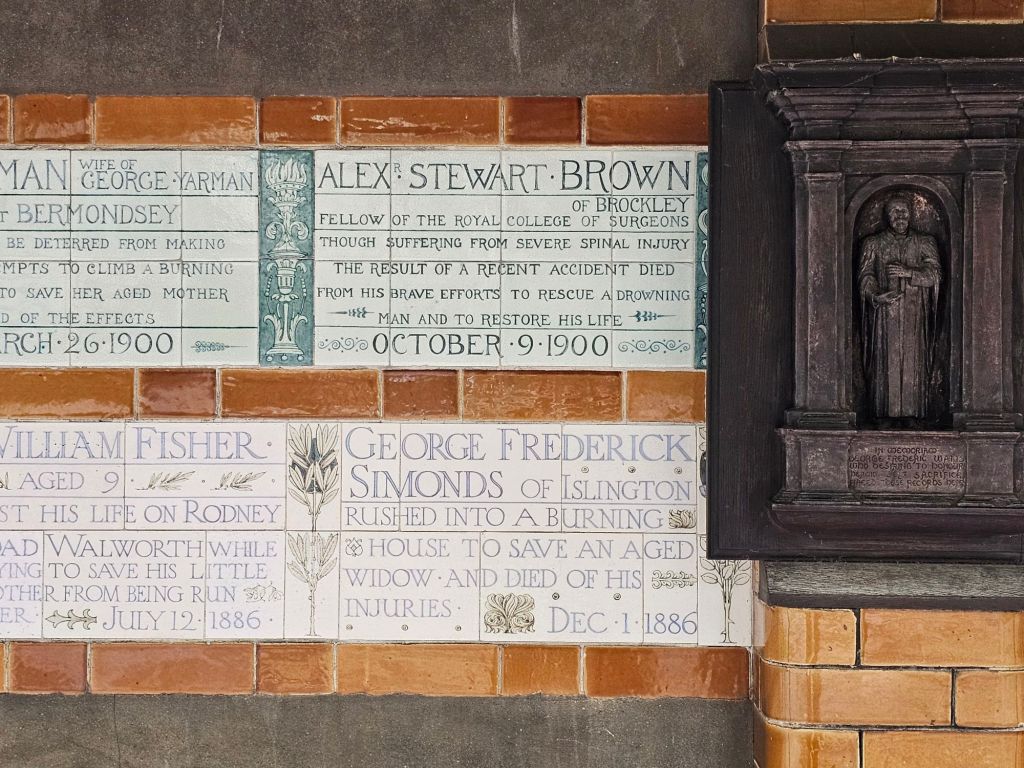 MAN WIFE OF
GEORGE · YARMAN
BERMONDSEY
BE DETERRED FROM MAKING
TO CLIMB A BURNING
TO SAVE HER AGED MOTHER
OF THE EFFECTS
26 · 1900
ALEXR · STEWART · BROWN
OF BROCKLEY
FELLOW OF THE ROYAL COLLEGE OF SURGEONS
THOUGH SUFFERING FROM SEVERE SPINAL INJURY
THE RESULT OF A RECENT ACCIDENT DIED
FROM HIS BRAVE EFFORTS TO RESCUE A DROWNING
MAN AND TO RESTORE HIS LIFE
OCTOBER · 9 · 1900
WILLIAM FISHER ·
AGED 9
ST HIS LIFE ON RODNEY
OAD WALWORTH WHILE
YING TO SAVE HIS LITTLE
OTHER FROM BEING RUN
ER · JULY 12 · 1886 ·
GEORGE FREDERICK
SIMONDS OF ISLINGTON
RUSHED INTO A BURNING
HOUSE TO SAVE AN AGED
WIDOW · AND DIED OF HIS
INJURIES ·
DEC · 1 · 1886
IN MEMORIAM
GEORGE FREDERIC WATTS
WHO DESIRING TO HONOUR
HEROIC SELF SACRIFICE
PLACED THESE RECORDS HERE